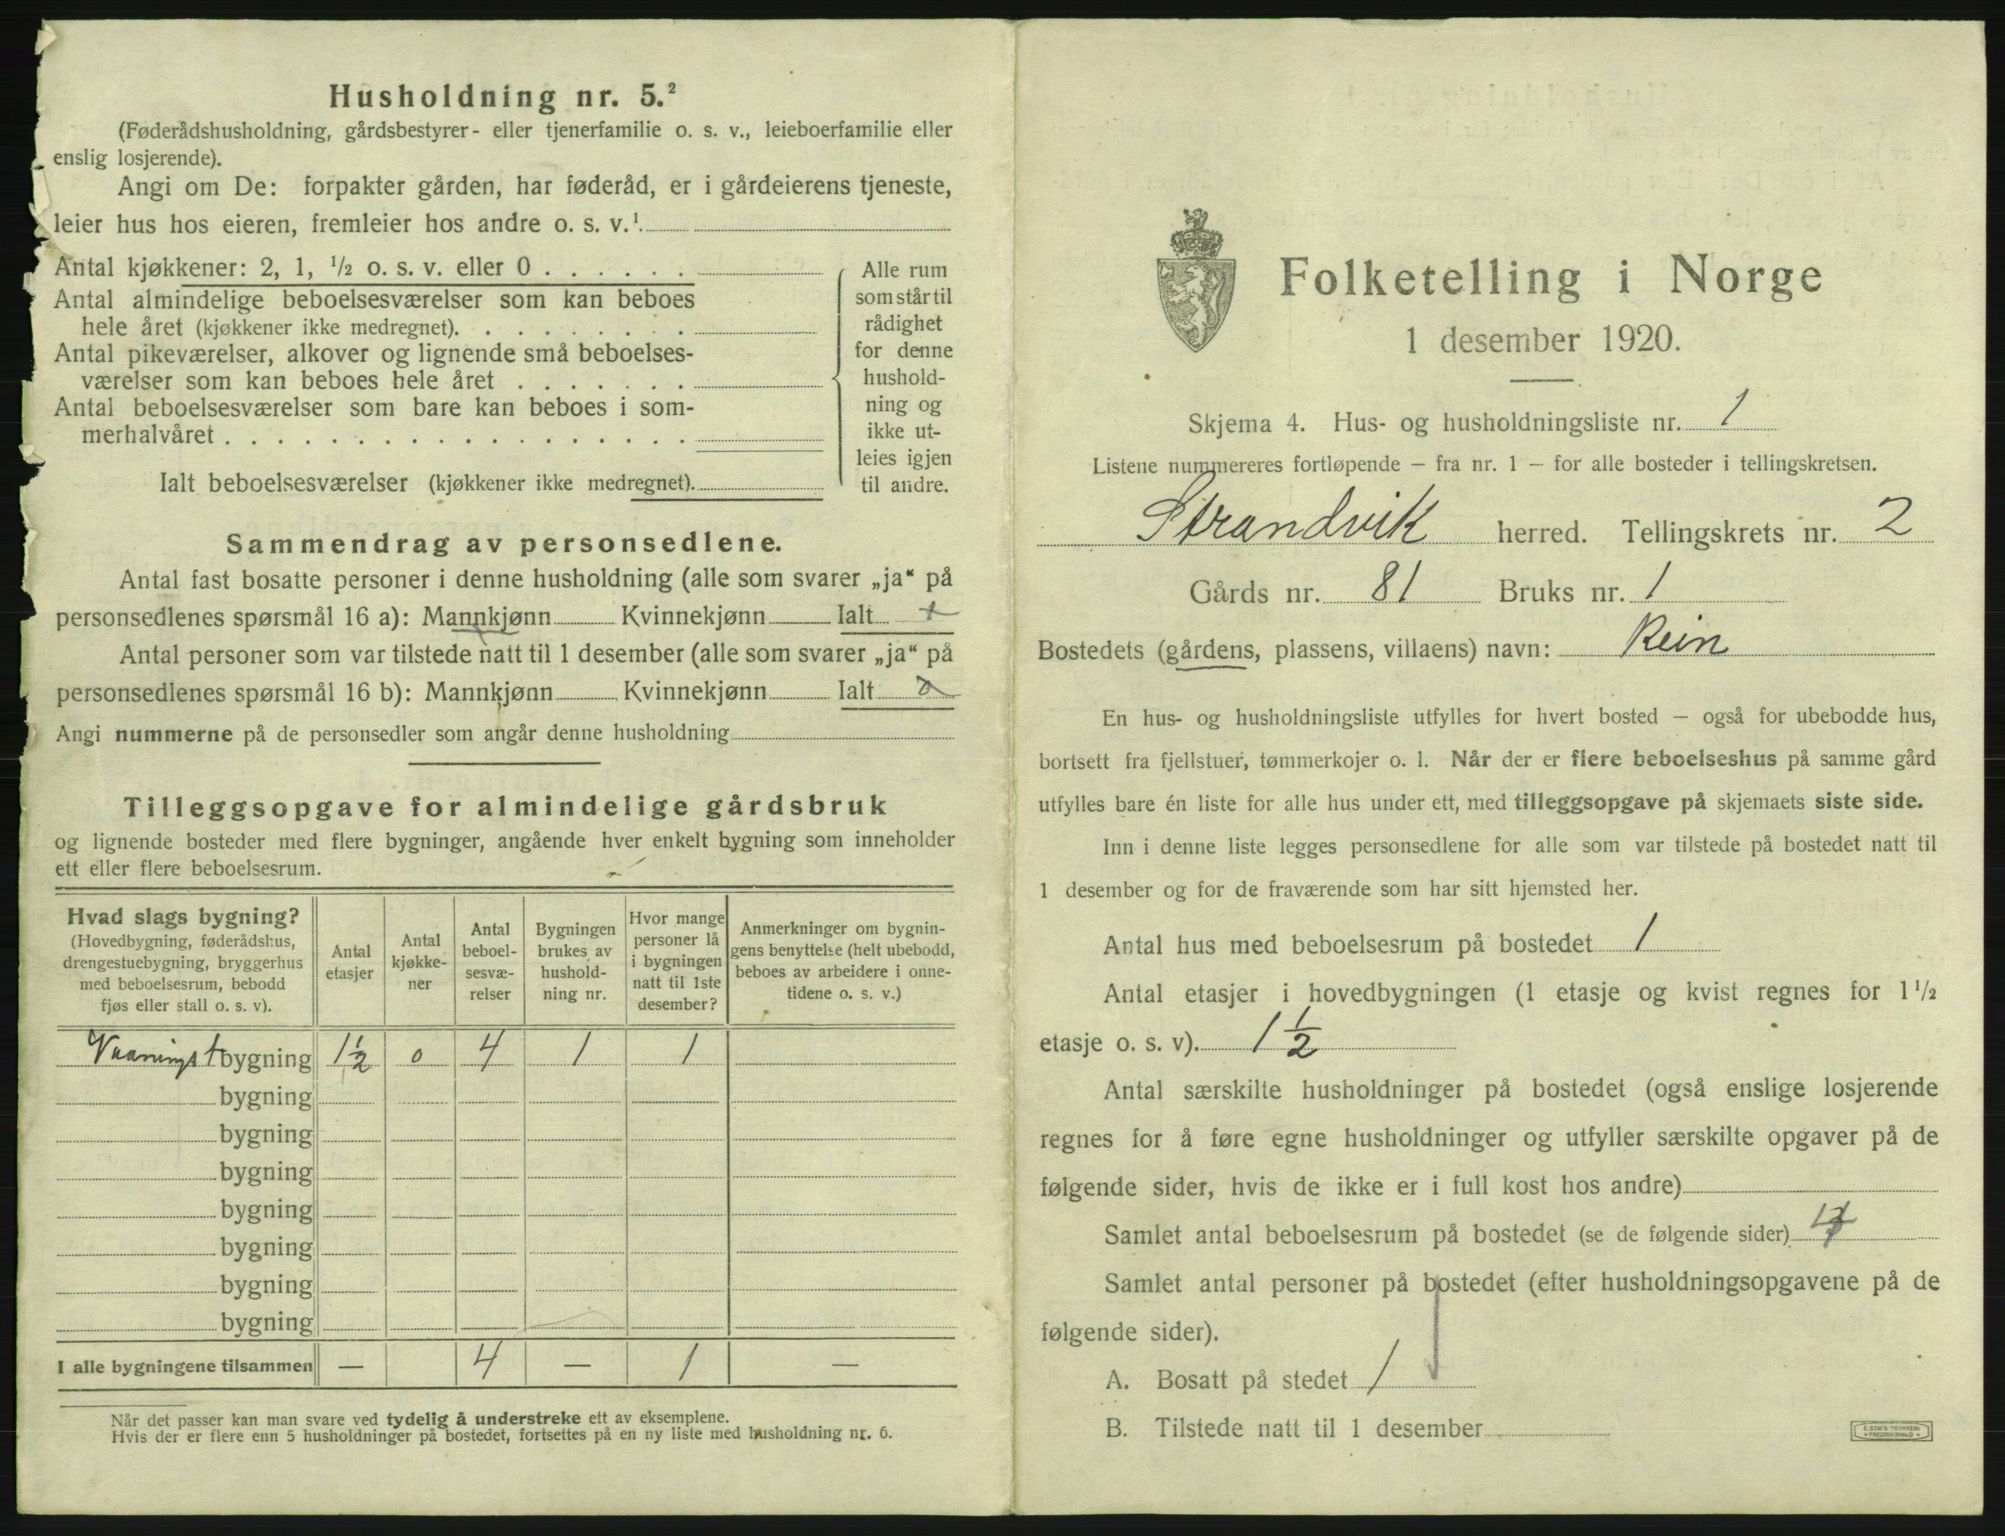 Husholdning nr. 5.²
(Føderådshusholdning, gårdsbestyrer- eller tjenerfamilie o. s. v., leieboerfamilie eller
enslig losjerende).
Angi om De: forpakter gården, har føderåd, er i gårdeierens tjeneste,
leier hus hos eieren, fremleier hos andre o. s. v.¹
Antal kjøkkener: 2, 1, ½ o. s. v. eller 0 . . . . . .
Antal almindelige beboelsesværelser som kan beboes
hele året (kjøkkener ikke medregnet). . . . . . . . .
Antal pikeværelser, alkover og lignende små beboelses-
værelser som kan beboes hele året . . . . . . .
Antal beboelsesværelser som bare kan beboes i som-
merhalvåret . . . . . . . . . . . . . . . . . .
Ialt beboelsesværelser (kjøkkener ikke medregnet).
Alle rum
som står til
rådighet
for denne
hushold-
ning og
ikke ut-
leies igjen
til andre.
Sammendrag av personsedlene.
Antal fast bosatte personer i denne husholdning (alle som svarer „ja“ på
personsedlenes spørsmål 16 a): Mannkjønn Kvinnekjønn Ialt
Antal personer som var tilstede natt til 1 desember (alle som svarer „ja“ på
personsedlenes spørsmål 16 b): Mannkjønn Kvinnekjønn Ialt
Angi nummerne på de personsedler som angår denne husholdning
Tilleggsopgave for almindelige gårdsbruk
og lignende bosteder med flere bygninger, angående hver enkelt bygning som inneholder
ett eller flere beboelsesrum.
Hvad slags bygning?
(Hovedbygning, føderådshus,
drengestuebygning, bryggerhus
med beboelsesrum, bebodd
fjøs eller stall o. s. v).
Antal
etasjer
Antal
kjøkke-
ner
Antal
beboel-
sesvæ-
relser
Bygningen
brukes av
hushold-
ning nr.
Hvor mange
personer lå
i bygningen
natt til 1ste
desember?
Anmerkninger om bygnin-
gens benyttelse (helt ubebodd,
beboes av arbeidere i onne-
tidene o. s. v.)
bygning 1½ 0 4 1 1
bygning
bygning
bygning
bygning
bygning
bygning
bygning
I alle bygningene tilsammen — 4 — 1 —
Når det passer kan man svare ved tydelig å understreke ett av eksemplene.
Hvis der er flere enn 5 husholdninger på bostedet, fortsettes på en ny liste med husholdning nr. 6.
Folketelling i Norge
1 desember 1920.
Skjema 4. Hus- og husholdningsliste nr. 1
Listene nummereres fortløpende – fra nr. 1 – for alle bosteder i tellingskretsen.
Strandvik herred. Tellingskrets nr. 2
Gårds nr. 81 Bruks nr. 1
Bostedets (gårdens, plassens, villaens) navn: Rein
En hus- og husholdningsliste utfylles for hvert bosted – også for ubebodde hus,
bortsett fra fjellstuer, tømmerkojer o. l. Når der er flere beboelseshus på samme gård
utfylles bare én liste for alle hus under ett, med tilleggsopgave på skjemaets siste side.
Inn i denne liste legges personsedlene for alle som var tilstede på bostedet natt til
1 desember og for de fraværende som har sitt hjemsted her.
Antal hus med beboelsesrum på bostedet 1
Antal etasjer i hovedbygningen (1 etasje og kvist regnes for 1½
etasje o. s. v). 1½
Antal særskilte husholdninger på bostedet (også enslige losjerende
regnes for å føre egne husholdninger og utfyller særskilte opgaver på de
følgende sider, hvis de ikke er i full kost hos andre)
Samlet antal beboelsesrum på bostedet (se de følgende sider)
Samlet antal personer på bostedet (efter husholdningsopgavene på de
følgende sider).
A. Bosatt på stedet 1
B. Tilstede natt til 1 desember